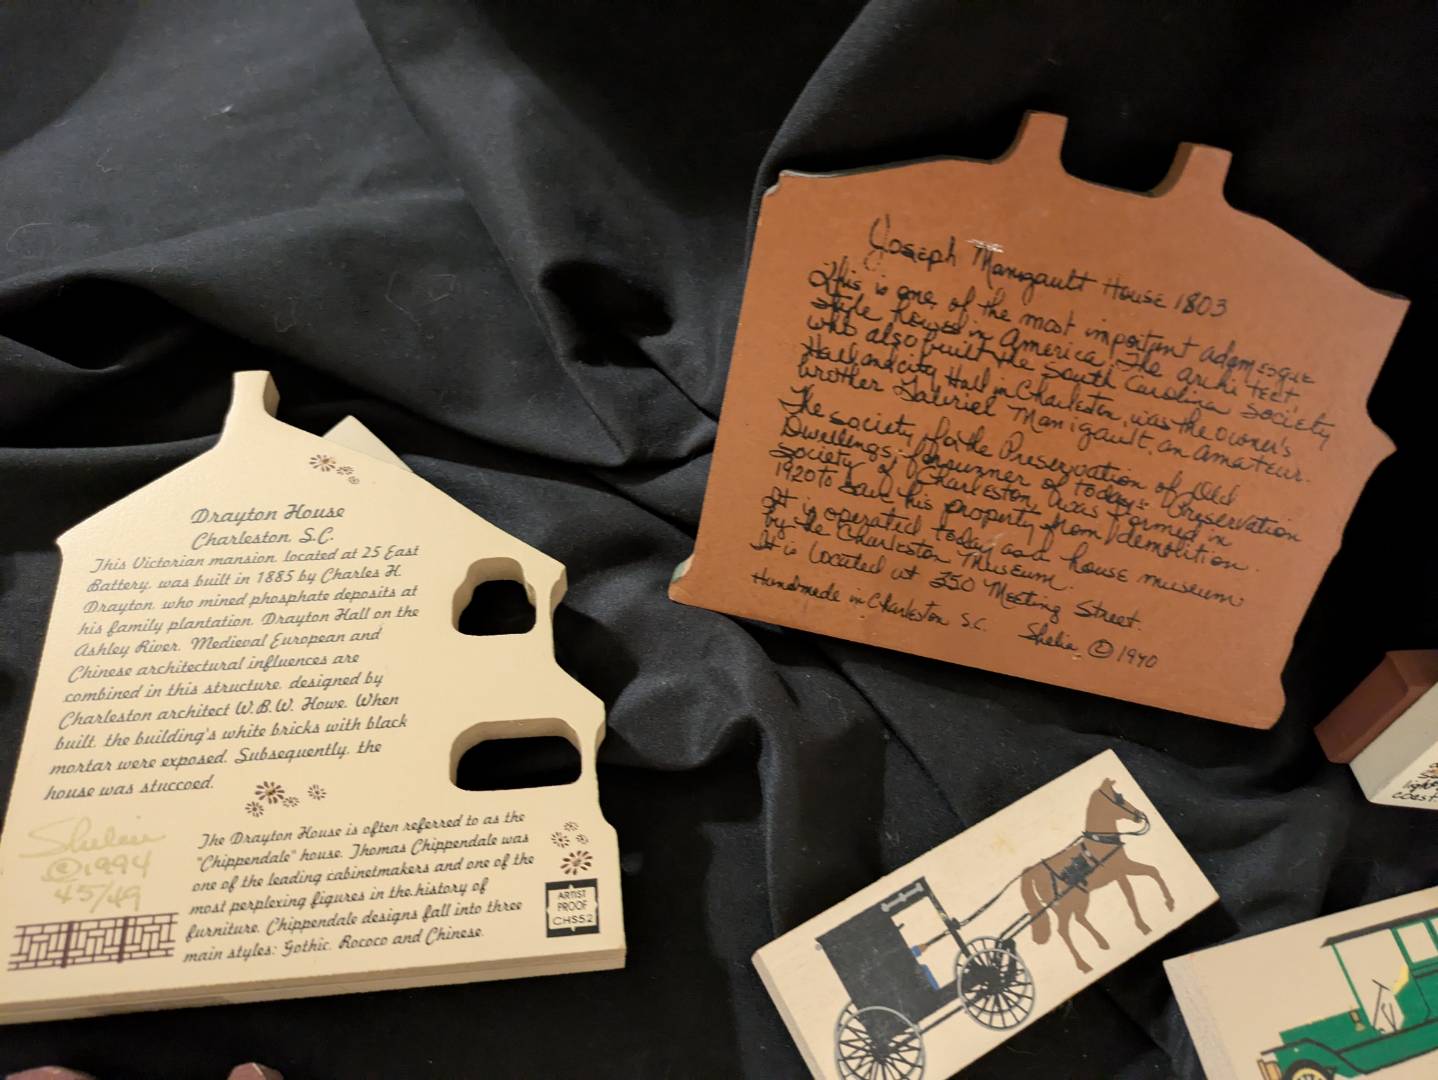 Drayton House
Charleston, S.C.
This Victorian mansion, located at 25 East
Battery, was built in 1885 by Charles H.
Drayton, who mined phosphate deposits at
his family plantation, Drayton Hall on the
Ashley River. Medieval European and
Chinese architectural influences are
combined in this structure, designed by
Charleston architect W.B.W. Howe. When
built, the building's white bricks with black
mortar were exposed. Subsequently, the
house was stuccoed.
The Drayton House is often referred to as the
"Chippendale" house. Thomas Chippendale was
one of the leading cabinetmakers and one of the
most perplexing figures in the history of
furniture. Chippendale designs fall into three
main styles: Gothic, Rococo and Chinese.
©1994
45/49
ARTIST
PROOF
CHS52
Joseph Manigault House 1803
This is one of the most important adamesque
style houses in America. The architect,
who also built the South Carolina Society
Hall and city Hall in Charleston, was the owner's
brother Gabriel Manigault, an amateur.
The society for the Preservation of Old
Dwellings, forerunner of today's Preservation
Society of Charleston, was formed in
1920 to save this property from demolition.
It is operated today as a house museum
by the Charleston Museum.
It is located at 350 Meeting Street.
Handmade in Charleston S.C. Shelia © 1990
coast